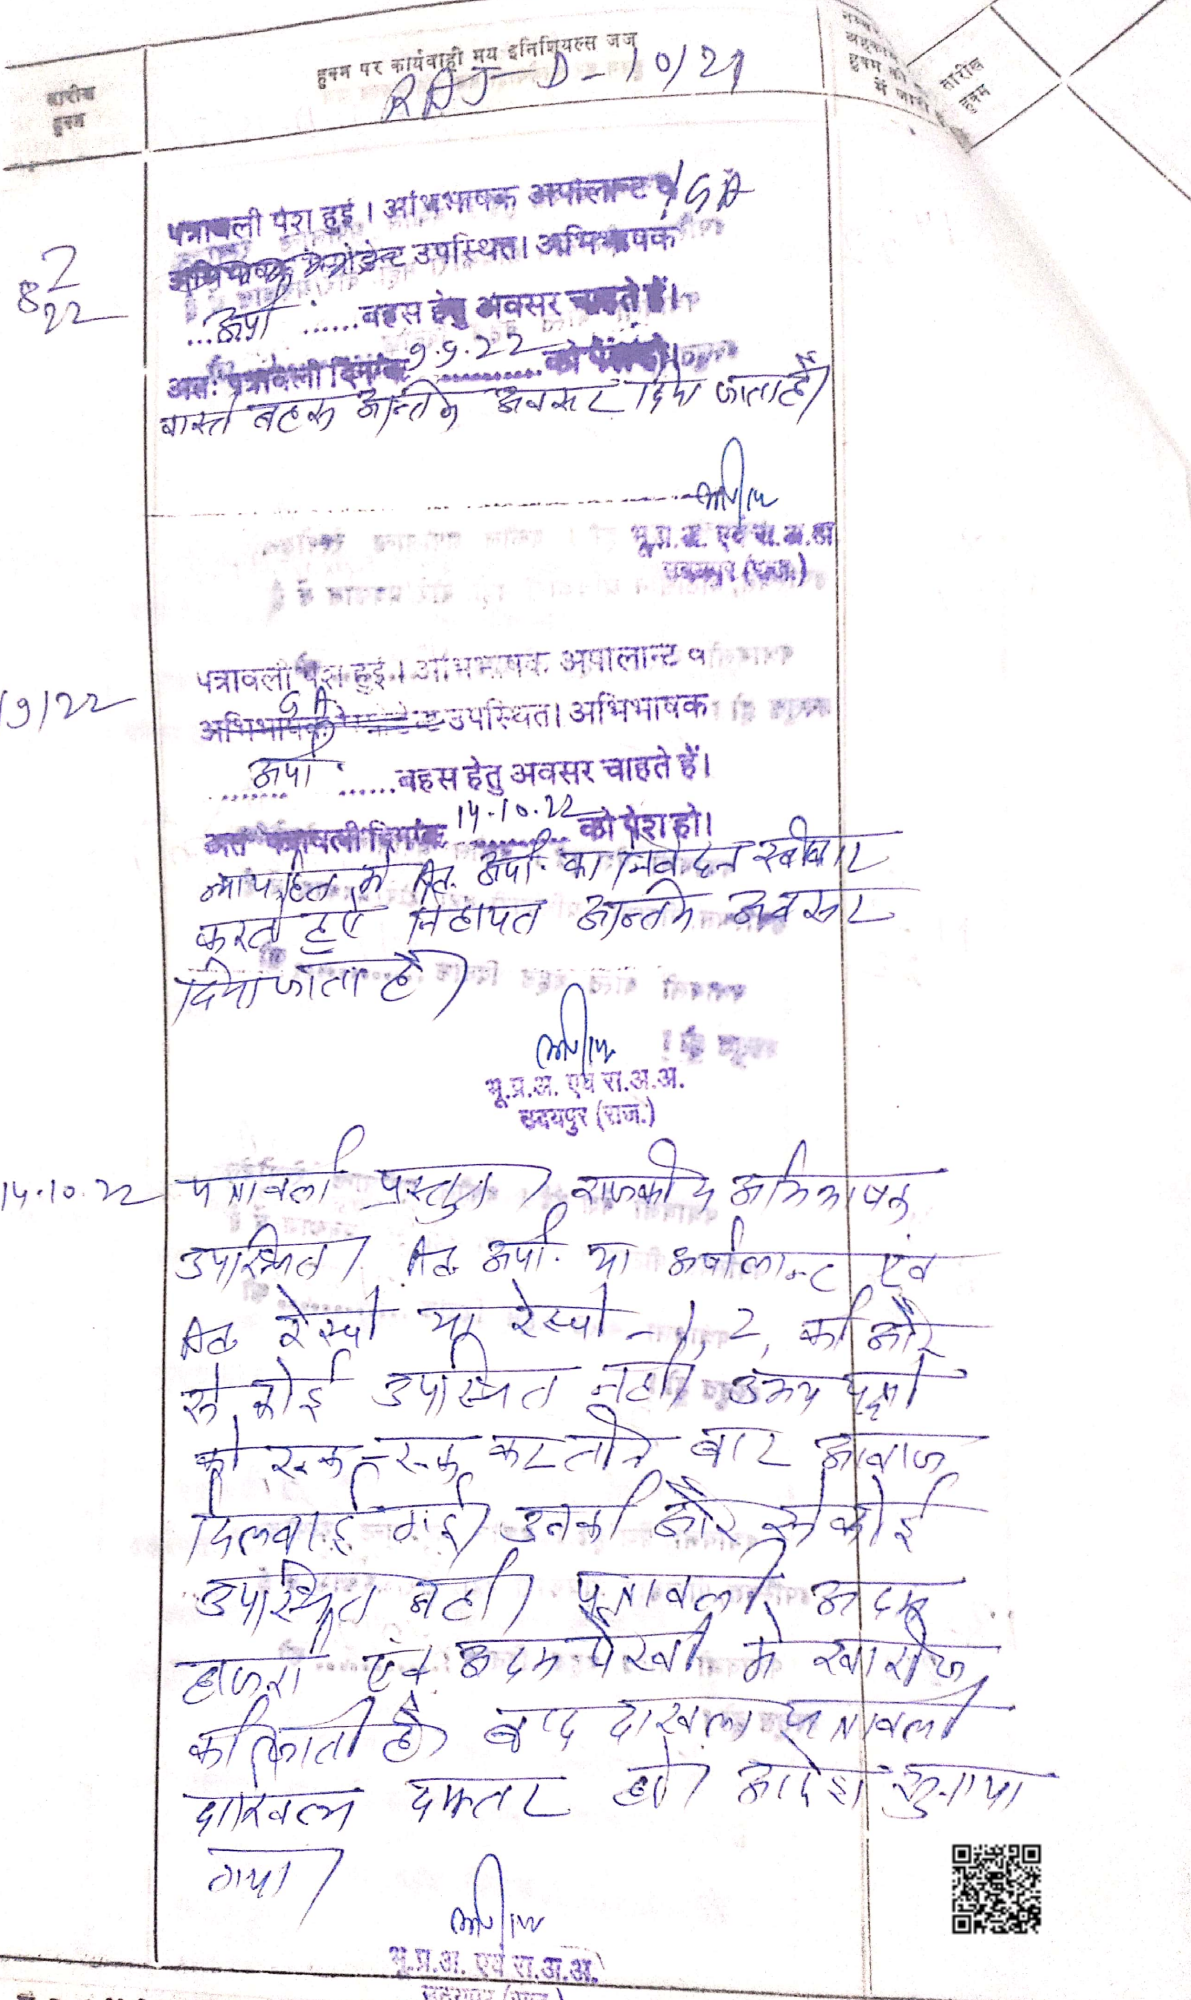 हुक्म पर कार्यवाही मय इनिशियल्स जज
तारीख
हुक्म
RAJ D-10/21
में जारी
तारीख
हुक्म
पत्रावली पेश हुई। अभिभाषक अपीलान्ट व GA
अभिभाषक रेस्पोडेन्ट उपस्थित। अभिभाषक
8 2
22
...अपी. ......बहस हेतु अवसर चाहते हैं।
अतः पत्रावली दिनांक 9.9.22 को पेश हो।
वास्ते बहस अन्तिम अवसर दिया जाता है।
भू.प्र.अ. एवं रा.अ.अ.
उदयपुर (राज.)
पत्रावली पेश हुई। अभिभाषक अपीलान्ट व
GA
9/22
अभिभाषक उपस्थित। अभिभाषक
अपी. ......बहस हेतु अवसर चाहते हैं।
अतः पत्रावली दिनांक 14.10.22 को पेश हो।
न्यायहित में Ad. अपी. का निवेदन स्वीकार
करते हुए निहायत अन्तिम अवसर
दिया जाता है।
भू.प्र.अ. एवं रा.अ.अ.
उदयपुर (राज.)
14.10.22 पत्रावली प्रस्तुत। राजकीय अभिभाषक
उपस्थित। Ad. अपी. या अपीलान्ट एवं
Ad. रेस्पो या रेस्पो-1,2, की और
से कोई उपस्थित नहीं। उभय पक्षों
को एक-एक कर तीन बार आवाज
दिलवाई गई। उनकी और से कोई
उपस्थित नहीं। पत्रावली अदम
हाजरी एवं अदम पैरवी में खारीज
की जाती है। बाद दाखला पत्रावली
दाखिल दफ्तर हो। आदेश सुनाया
गया।
भू.प्र.अ. एवं रा.अ.अ.
उदयपुर (राज.)